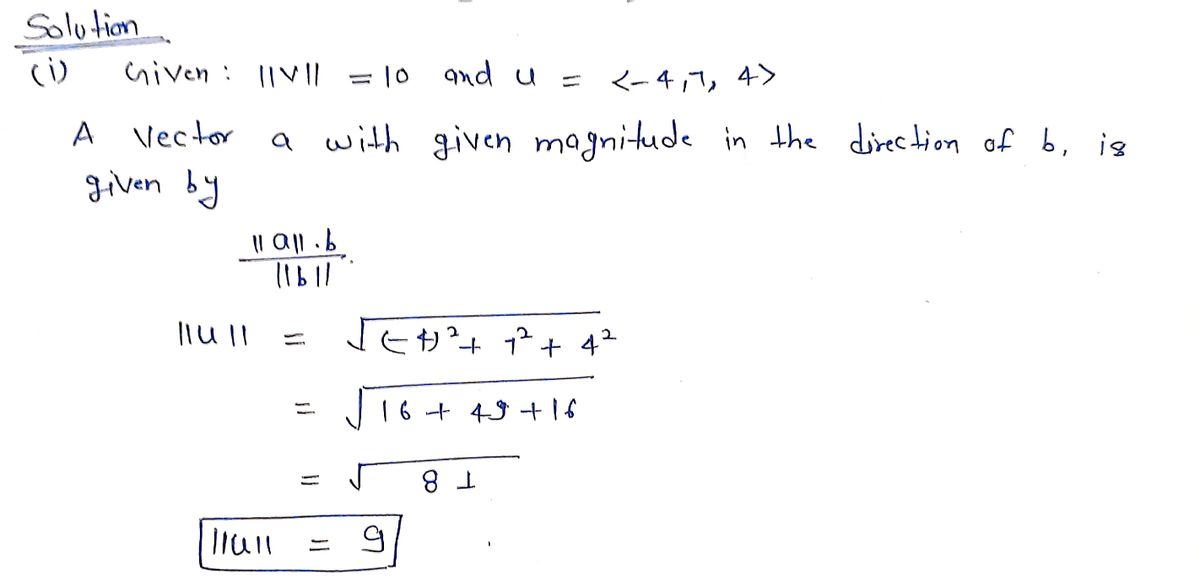 Solution
(i) Given: ||V|| = 10 and u = <-4,7, 4>
A Vector a with given magnitude in the direction of b, is
given by
||a||.b
||b||
||u|| = √(-4)²+ 7²+ 4²
= √16 + 49 +16
= √81
||u|| = 9